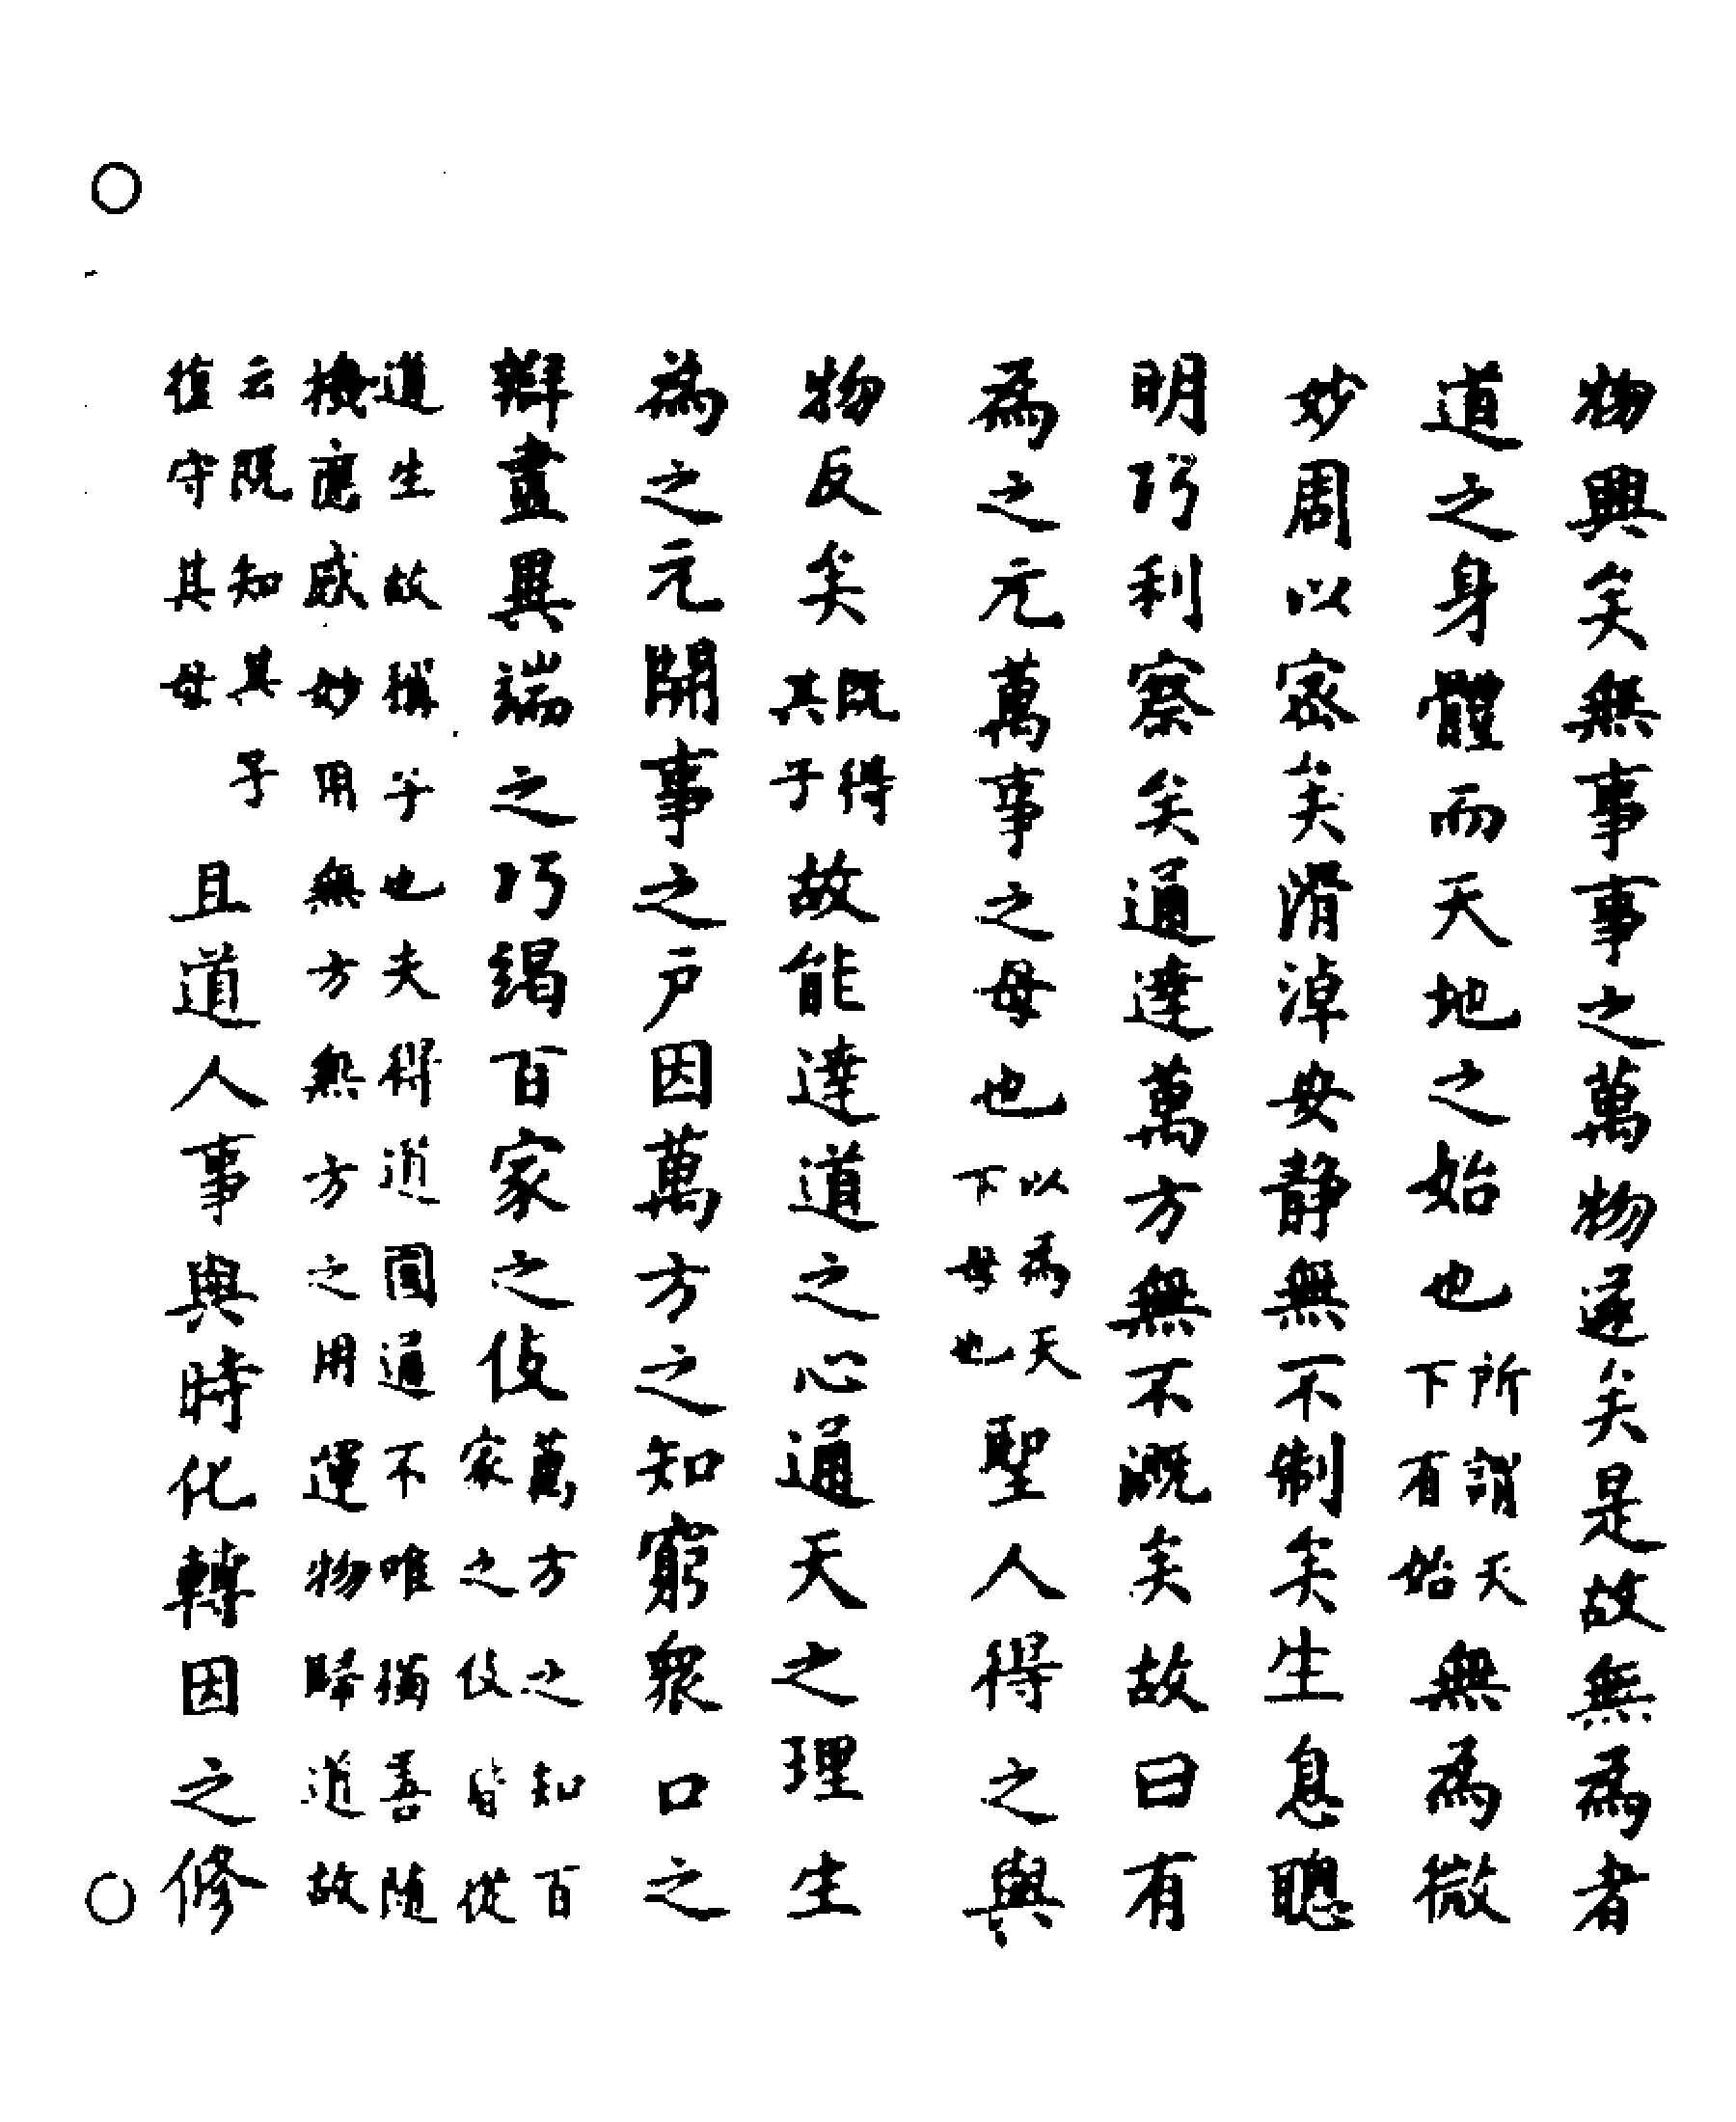 物興矣無事事之萬物遂矣是故無為者
道之身體而天地之始也所謂天下有始無為微
妙周以密矣滑淖安静無不制矣生息聰
明巧利察矣通達萬方無不溉矣故曰有
為之元萬事之母也以為天下母也聖人得之與
物反矣既得其子故能達道之心通天之理生
為之元開事之戶因萬方之知窮眾口之
辯盡異端之巧竭百家之伎萬方之知百家之伎皆從
道生故稱子也夫得道圓通不唯獨善隨
機應感妙用無方無方之用運物歸道故
云既知其子復守其母且道人事與時化轉因之修